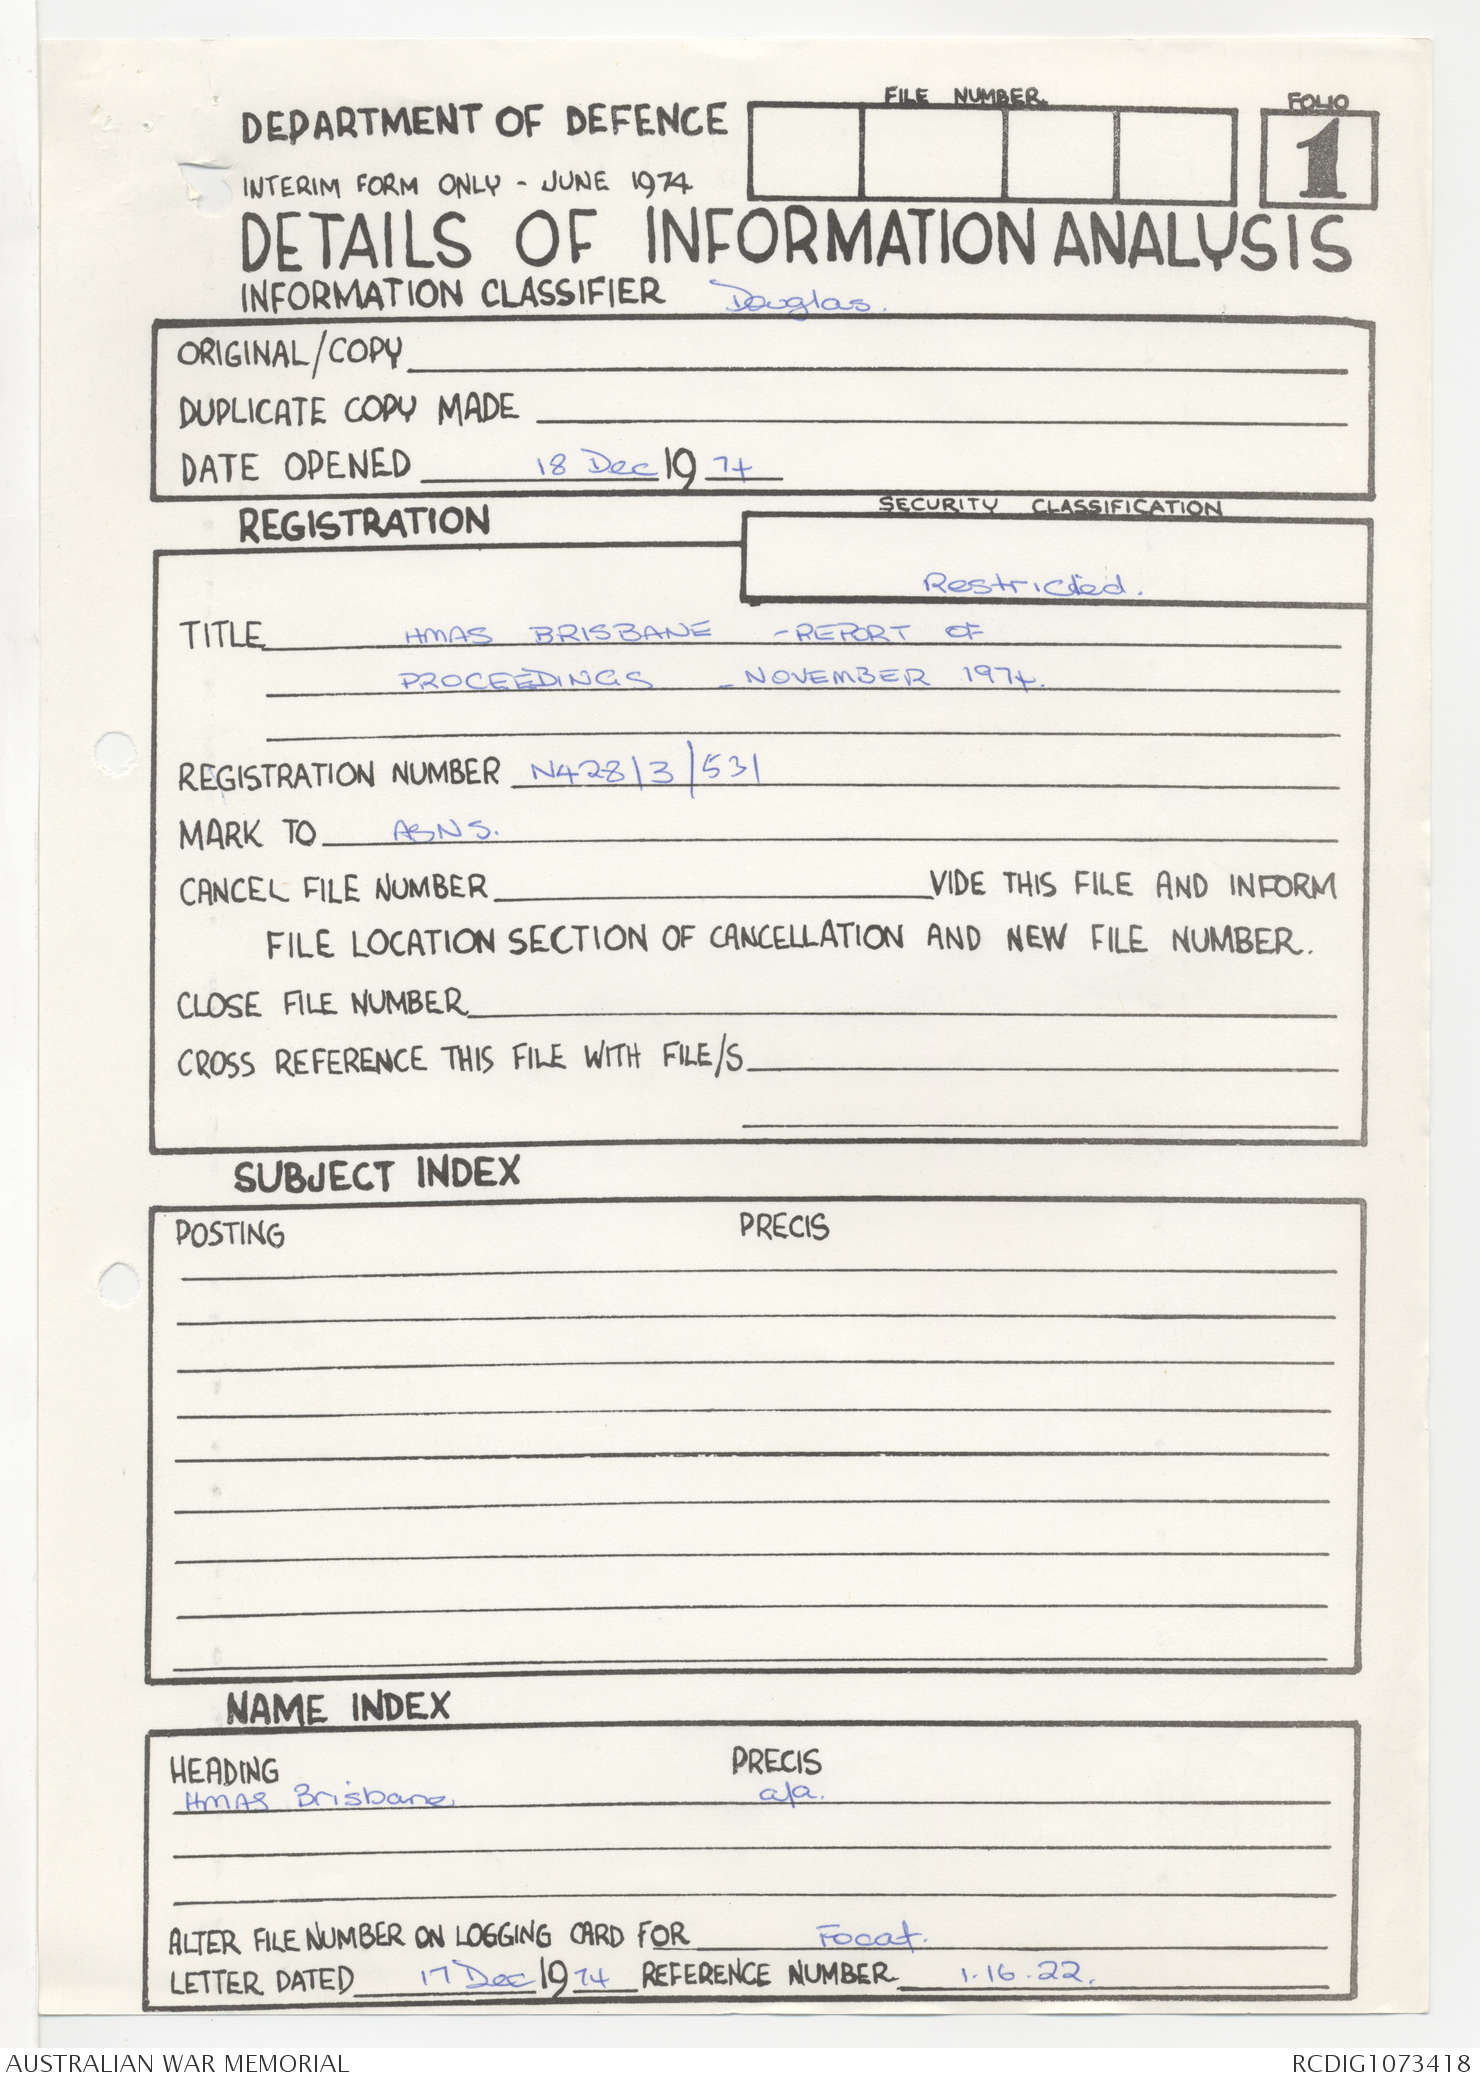 FILE NUMBER
FOLIO
DEPARTMENT OF DEFENCE
1
INTERIM FORM ONLY - JUNE 1974
DETAILS OF INFORMATION ANALYSIS
INFORMATION CLASSIFIER Douglas.
ORIGINAL/COPY
DUPLICATE COPY MADE
DATE OPENED 18 Dec 1974
SECURITY CLASSIFICATION
REGISTRATION
Restricted.
TITLE HMAS BRISBANE - REPORT OF
PROCEEDINGS - NOVEMBER 1974.
REGISTRATION NUMBER N428/3/531
MARK TO ASNS.
CANCEL FILE NUMBER VIDE THIS FILE AND INFORM
FILE LOCATION SECTION OF CANCELLATION AND NEW FILE NUMBER.
CLOSE FILE NUMBER
CROSS REFERENCE THIS FILE WITH FILE/S
SUBJECT INDEX
POSTING PRECIS
NAME INDEX
HEADING PRECIS
HMAS Brisbane. a/a.
ALTER FILE NUMBER ON LOGGING CARD FOR Focaf.
LETTER DATED 17 Dec 1974 REFERENCE NUMBER 1.16.22.
AUSTRALIAN WAR MEMORIAL
RCDIG1073418